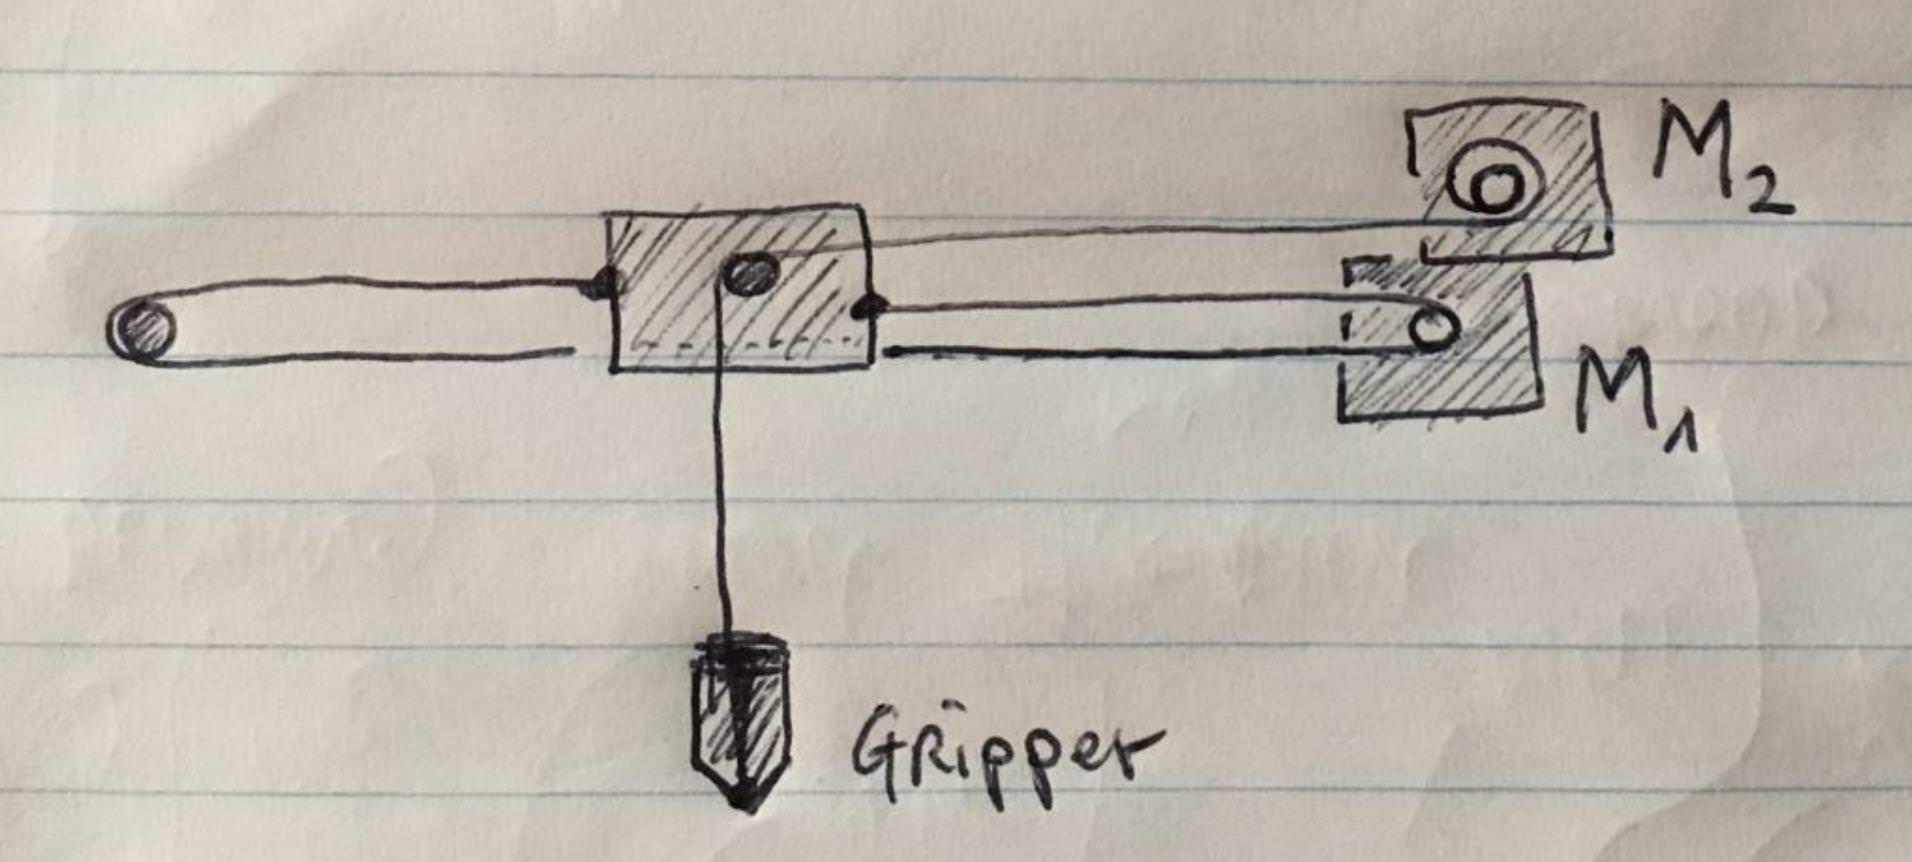 M2
M1
Gripper